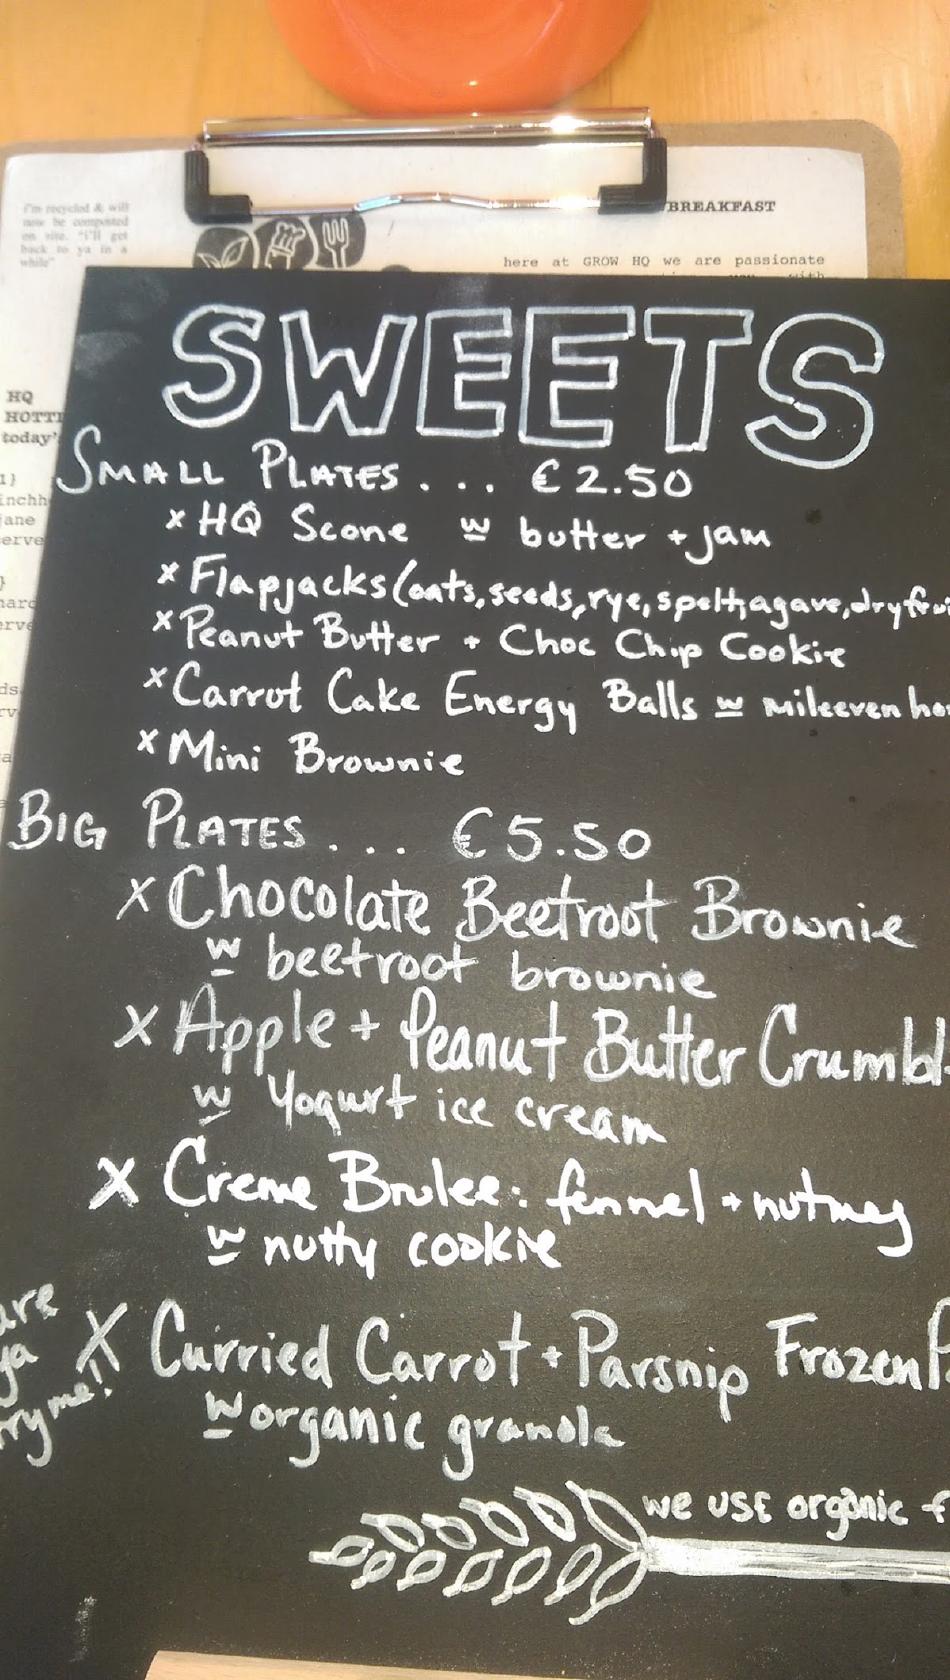 I'm recycled & will
now be composted
on site. "i'll get
back to ya in a
while"
BREAKFAST
here at GROW HQ we are passionate
with
HQ
HOTT
today'
SWEETS
SMALL PLATES . . . €2.50
x HQ Scone w butter + jam
x Flapjacks (oats, seeds, rye, spelt, agave, dry frui
x Peanut Butter + Choc Chip Cookie
x Carrot Cake Energy Balls w mileeven ho
x Mini Brownie
BIG PLATES . . . €5.50
x Chocolate Beetroot Brownie
w beetroot brownie
x Apple + Peanut Butter Crumbl
w Yogurt ice cream
x Creme Brulee: fennel + nutmeg
w nutty cookie
are
ya
try me!!
x Curried Carrot + Parsnip Frozen P
w organic granola
we use organic f